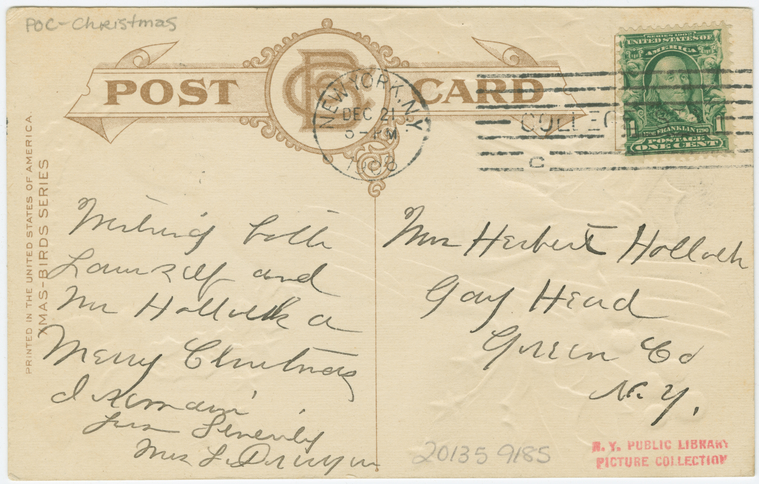 POC-Christmas
POST CARD
NEW YORK, N.Y.
DEC 21
5-PM
1908
COLLEGE
C
SERIES 1902
UNITED STATES OF
AMERICA
FRANKLIN
POSTAGE
ONE CENT
PRINTED IN THE UNITED STATES OF AMERICA.
XMAS-BIRDS SERIES
Wishing both
yourself and
Mr Hollock a
Merry Christmas
I remain
Yours Sincerely
Mrs L.
Mrs Herbert Hollock
Gay Head
Green Co
N.Y.
20135 9185
N.Y. PUBLIC LIBRARY
PICTURE COLLECTION